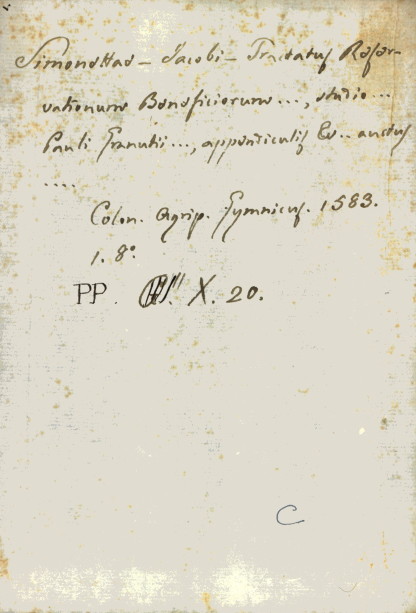 Simonettae – Jacobi – Tractatus Reser-
vationum Beneficiorum ..., studio ...
Pauli Granutii ..., appendiculis &c.. auctus
....
Colon. Agrip. Gymnicus. 1583.
1. 8°.
PP. X. 20.
C